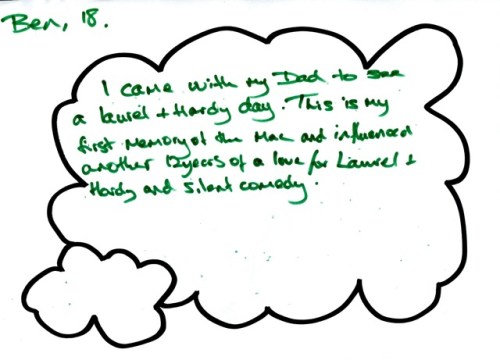 Ben, 18.
I came with my Dad to see
a laurel + Hardy day. This is my
first memory of the Mac and influenced
another 12 years of a love for Laurel +
Hardy and silent comedy.